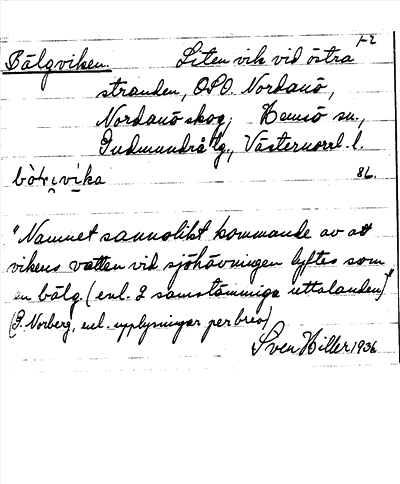 1-2
Bälgviken. Liten vik vid östra
stranden, OSO. Nordanö,
Nordanö skog, Hemsö sn.,
Gudmundrå tg., Västernorrl. l.
86.
"Namnet sannolikt kommande av att
vikens vatten vid sjöhävningen lyftes som
en bälg. (enl. 2 samstämmiga uttalanden)"
(P. Norberg, enl. upplysningar per brev)
Sven Hiller 1936